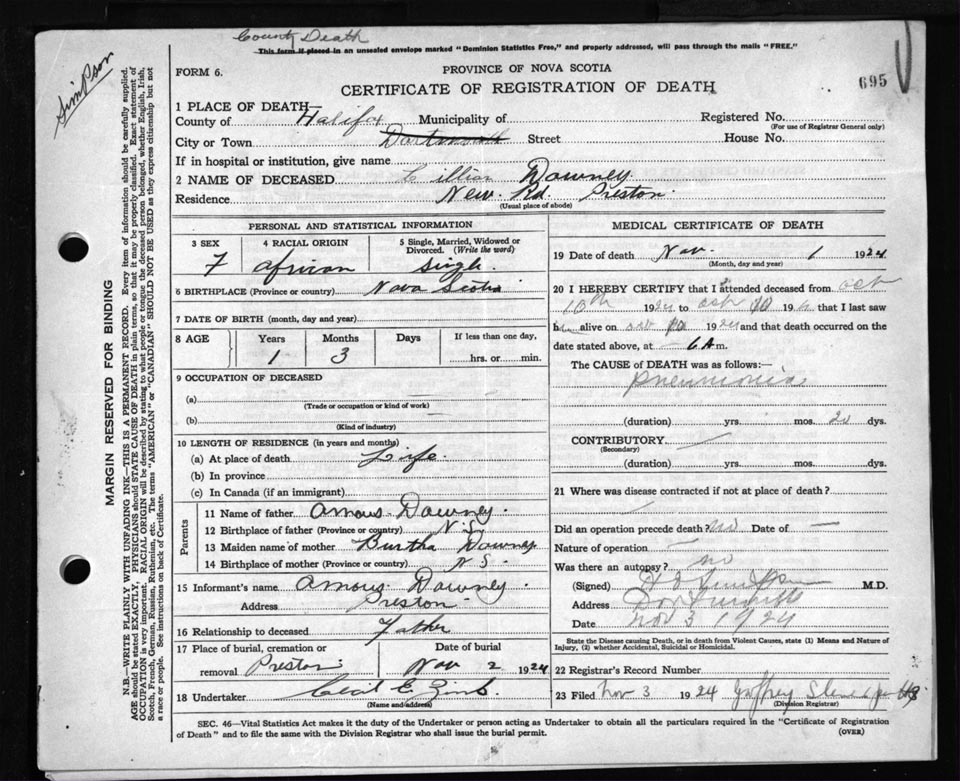 County Death
This form if placed in an unsealed envelope marked "Dominion Statistics Free," and properly addressed, will pass through the mails "FREE."
Simpson
FORM 6.
PROVINCE OF NOVA SCOTIA
695
CERTIFICATE OF REGISTRATION OF DEATH
1 PLACE OF DEATH—
County of Halifax Municipality of Registered No.
(For use of Registrar General only)
City or Town Dartmouth Street House No.
If in hospital or institution, give name
2 NAME OF DECEASED Downey
Residence New Rd. Preston
(Usual place of abode)
PERSONAL AND STATISTICAL INFORMATION
3 SEX 4 RACIAL ORIGIN 5 Single, Married, Widowed or Divorced. (Write the word)
F African Single
6 BIRTHPLACE (Province or country) Nova Scotia
7 DATE OF BIRTH (month, day and year)
8 AGE Years Months Days If less than one day,
1 3 hrs. or min.
9 OCCUPATION OF DECEASED
(a) —
(Trade or occupation or kind of work)
(b) —
(Kind of industry)
10 LENGTH OF RESIDENCE (in years and months)
(a) At place of death Life
(b) In province
(c) In Canada (if an immigrant)
Parents
11 Name of father Amous Downey.
12 Birthplace of father (Province or country) N.S.
13 Maiden name of mother Burtha Downey
14 Birthplace of mother (Province or country) N S.
15 Informant's name Amous Downey.
Address Preston
16 Relationship to deceased Father
17 Place of burial, cremation or removal Preston Date of burial Nov 2 1924
18 Undertaker Cecil E.
(Name and address)
MEDICAL CERTIFICATE OF DEATH
19 Date of death Nov. 1 1924
(Month, day and year)
20 I HEREBY CERTIFY that I attended deceased from Oct
10th 1924 to Oct 10 192 that I last saw
h alive on Oct 10 1924 and that death occurred on the
date stated above, at 6 A m.
The CAUSE of DEATH was as follows:—
Pneumonia
(duration) yrs. mos. 20 dys.
CONTRIBUTORY —
(Secondary)
(duration) yrs. mos. dys.
21 Where was disease contracted if not at place of death?
Did an operation precede death? no Date of —
Nature of operation —
Was there an autopsy? no
(Signed) Simpson M.D.
Address
Date Nov 3 1924
State the Disease causing Death, or in death from Violent Causes, state (1) Means and Nature of Injury, (2) whether Accidental, Suicidal or Homicidal.
22 Registrar's Record Number
23 Filed Nov 3 1924
(Division Registrar)
SEC. 46—Vital Statistics Act makes it the duty of the Undertaker or person acting as Undertaker to obtain all the particulars required in the "Certificate of Registration of Death" and to file the same with the Division Registrar who shall issue the burial permit.
(OVER)
MARGIN RESERVED FOR BINDING
N.B.—WRITE PLAINLY WITH UNFADING INK—THIS IS A PERMANENT RECORD. Every item of information should be carefully supplied.
AGE should be stated EXACTLY, PHYSICIANS should STATE CAUSE OF DEATH in plain terms, so that it may be properly classified. Exact statement of
OCCUPATION is very important. RACIAL ORIGIN will be described by stating to what people or tongue the deceased person belonged, whether English, Irish,
Scotch, French, German, Russian, Ruthenian, etc. The terms "AMERICAN" or "CANADIAN" SHOULD NOT BE USED as they express citizenship but not
a race or people. See instructions on back of Certificate.